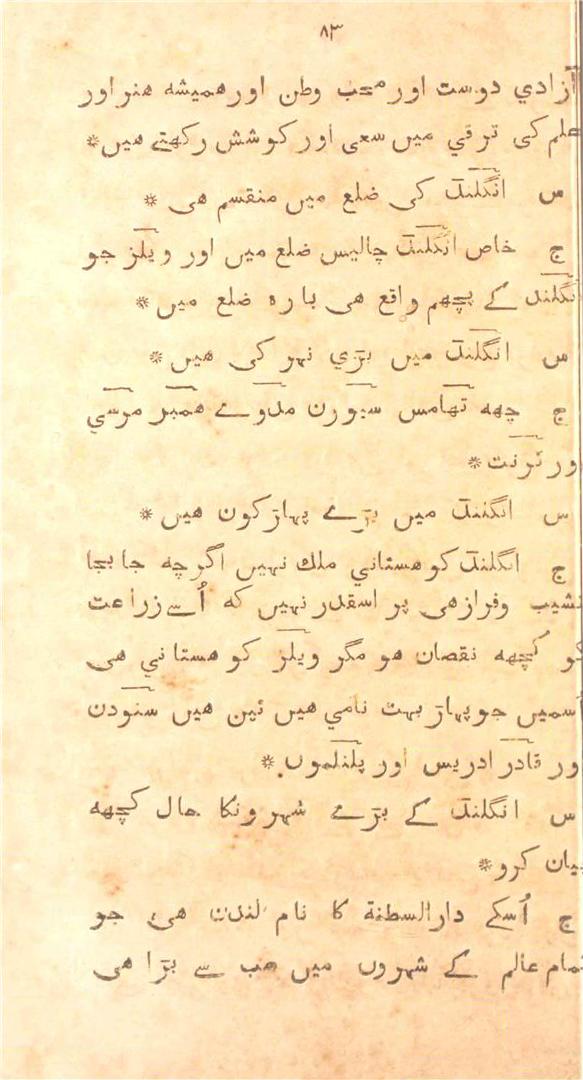 ۸۳
آزادي دوست اور محب وطن اور همیشه هنر اور
علم کی ترقي میں سعی اور کوشش رکھتے هیں *
س انگلنڈ کی ضلع میں منقسم هی *
ج خاص انگلنڈ چالیس ضلع میں اور ویلز جو
انگلنڈ کے پچھم واقع هی باره ضلع میں *
س انگلنڈ میں بڑي نہر کی هیں *
ج چھه تھامس سیورن مدوے همبر مرسي
اور ٹرنٹ *
س انگلنڈ میں بڑے پہاڑ کون هیں *
ج انگلنڈ کوهستاني ملك نہیں اگرچه جابجا
نشیب وفراز هی پر اسقدر نہیں که اُسے زراعت
کو کچھه نقصان هو مگر ویلز کوهستاني هی
اُسمیں جو پہاڑ بہت نامي هیں تین هیں سنوڈن
اور قادر ادریس اور پلنلموں *
س انگلنڈ کے بڑے شہرونکا حال کچھه
بیان کرو *
ج اُسکے دارالسطنة کا نام لندن هی جو
تمام عالم کے شہروں میں سب سے بڑا هی